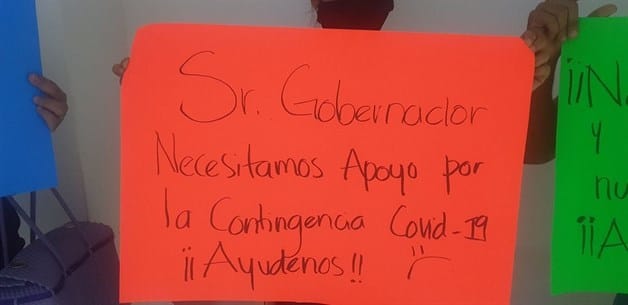 Sr. Gobernador
Necesitamos Apoyo por
la Contingencia Covid-19
¡¡Ayudenos!! :(
¡¡N
y
nu
¡¡A